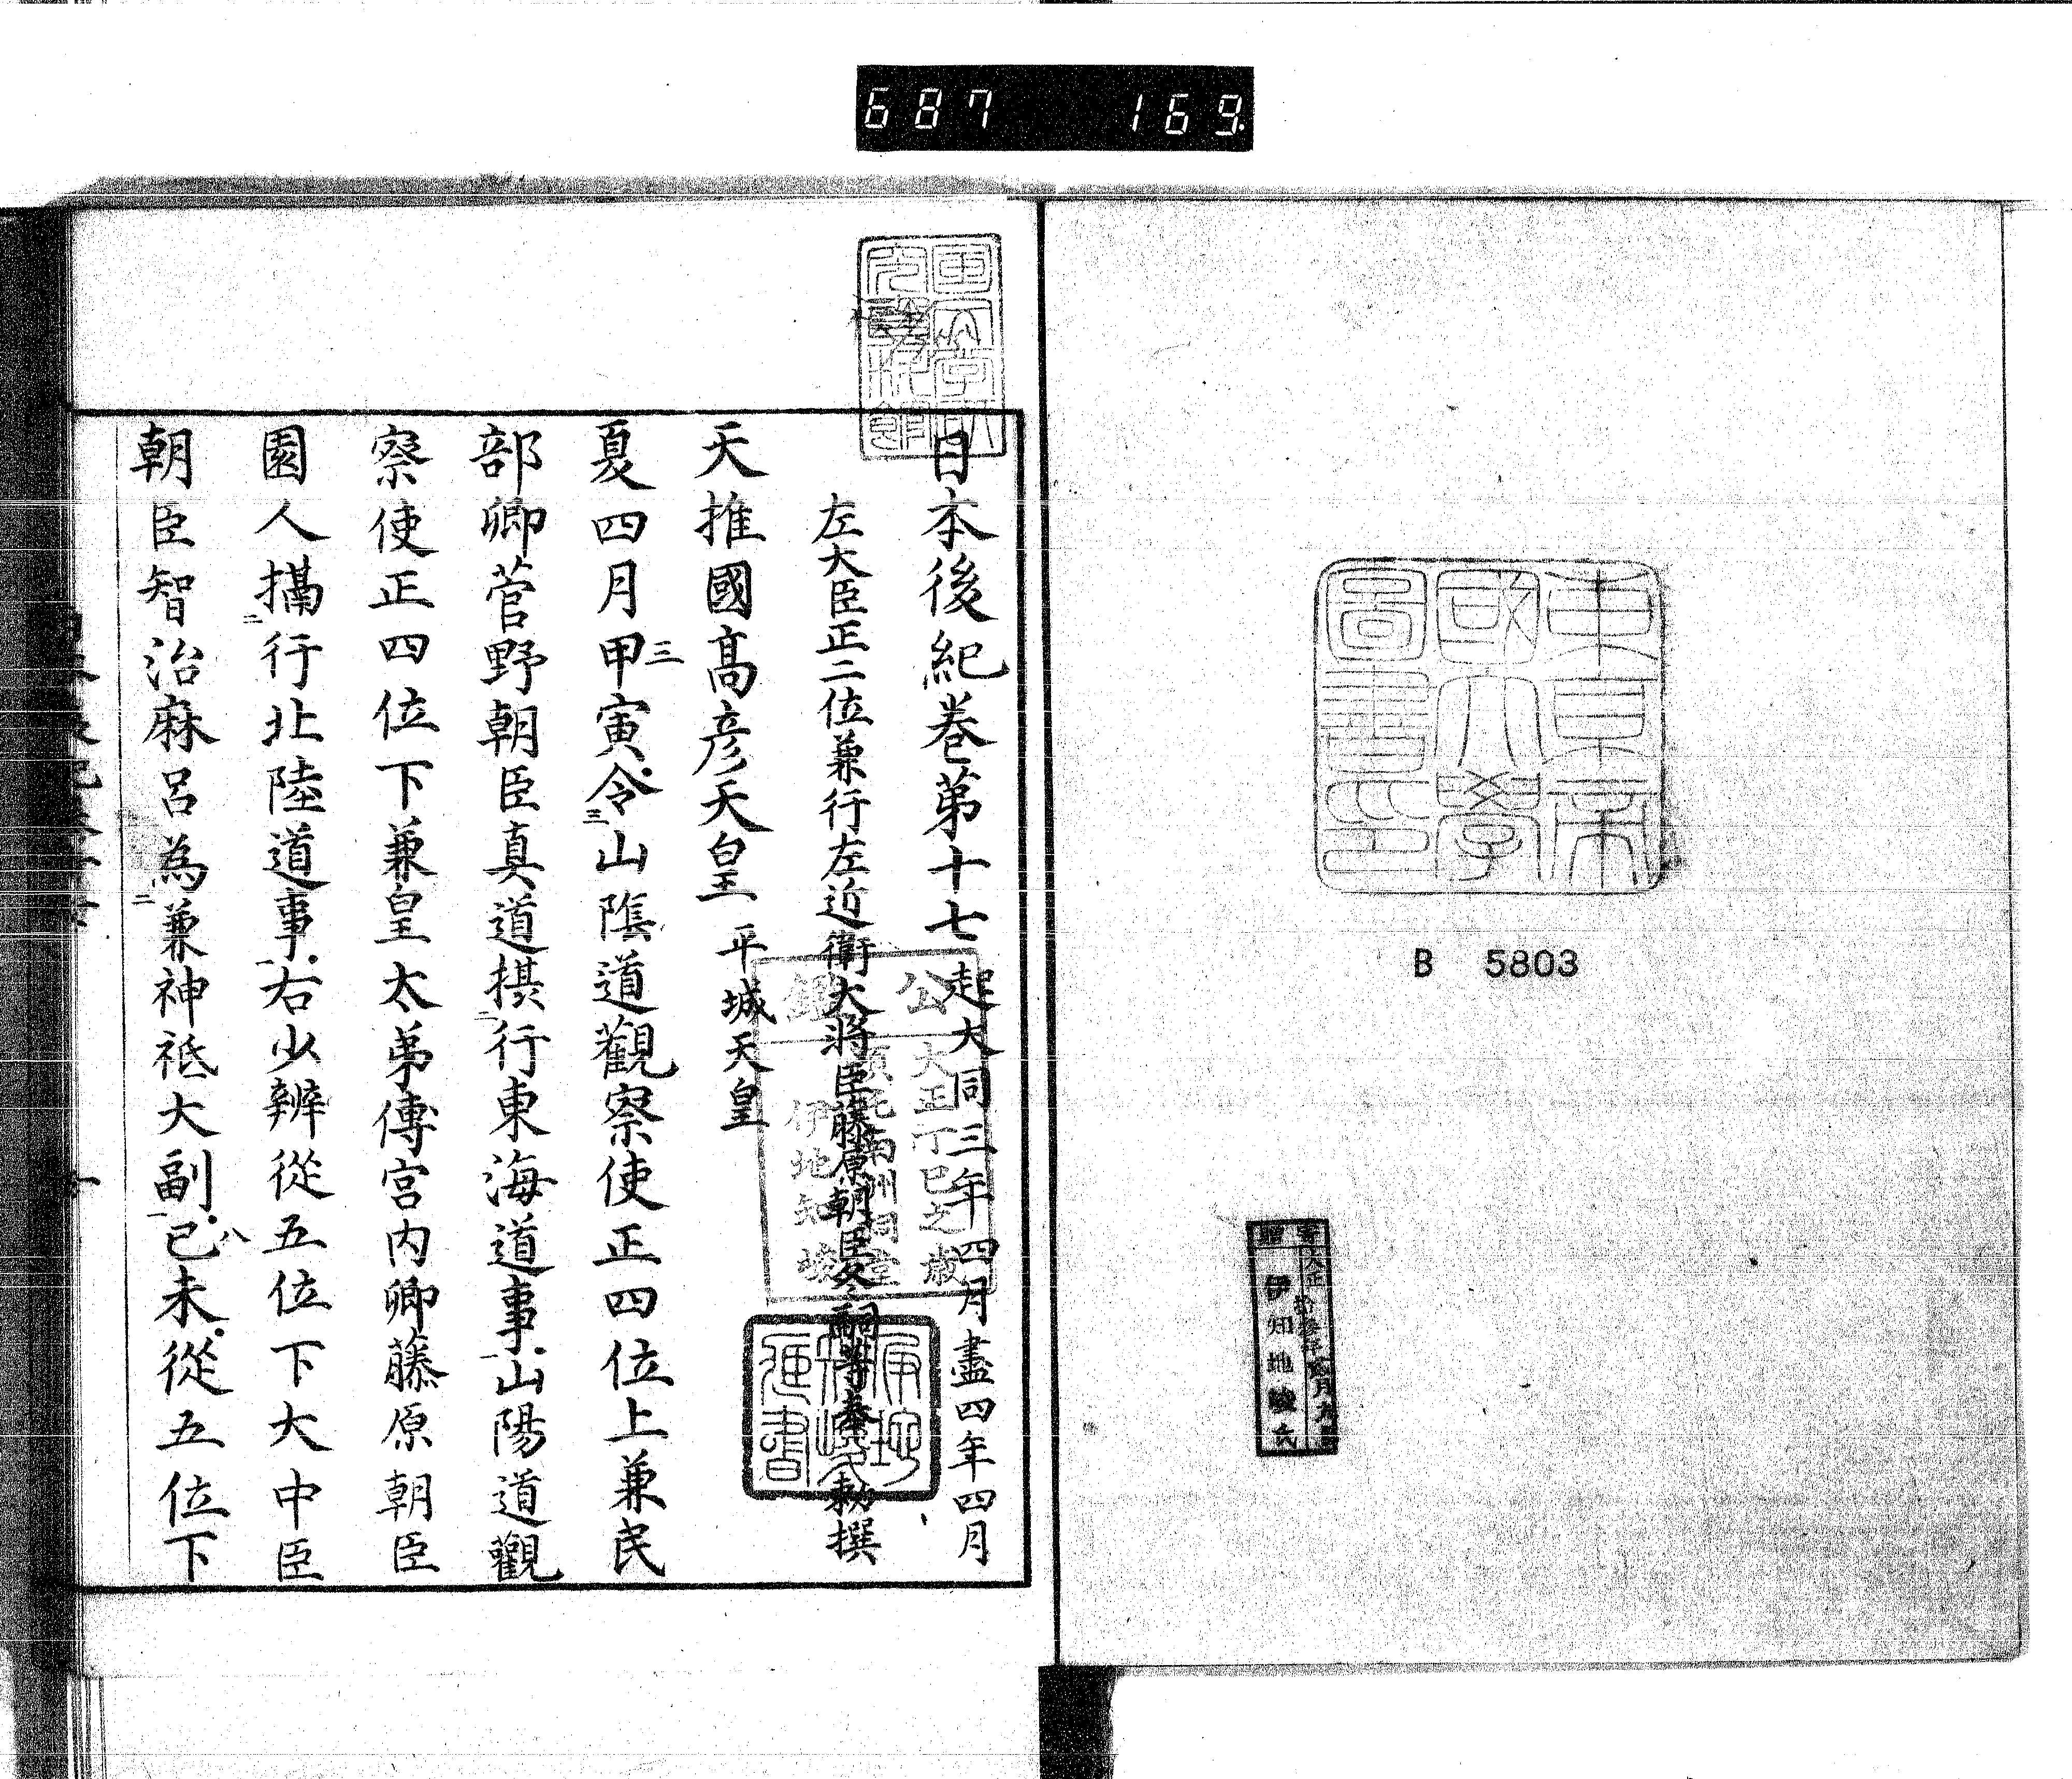 687 169
東京帝
國大學
圖書印
B 5803
寄贈
大正
伊地知峻氏
日本後紀卷第十七 起大同三年四月盡四年四月
左大臣正二位兼行左近衛大將臣藤原朝臣冬嗣等奉勅撰
天推國高彦天皇 平城天皇
夏四月甲寅令山陰道觀察使正四位上兼民
部卿菅野朝臣真道摂行東海道事山陽道觀
察使正四位下兼皇太弟傳宮内卿藤原朝臣
園人摂行北陸道事右少辨從五位下大中臣
朝臣智治麻呂為兼神祗大副己未從五位下
公
大正丁巳之歳
伊地知峻